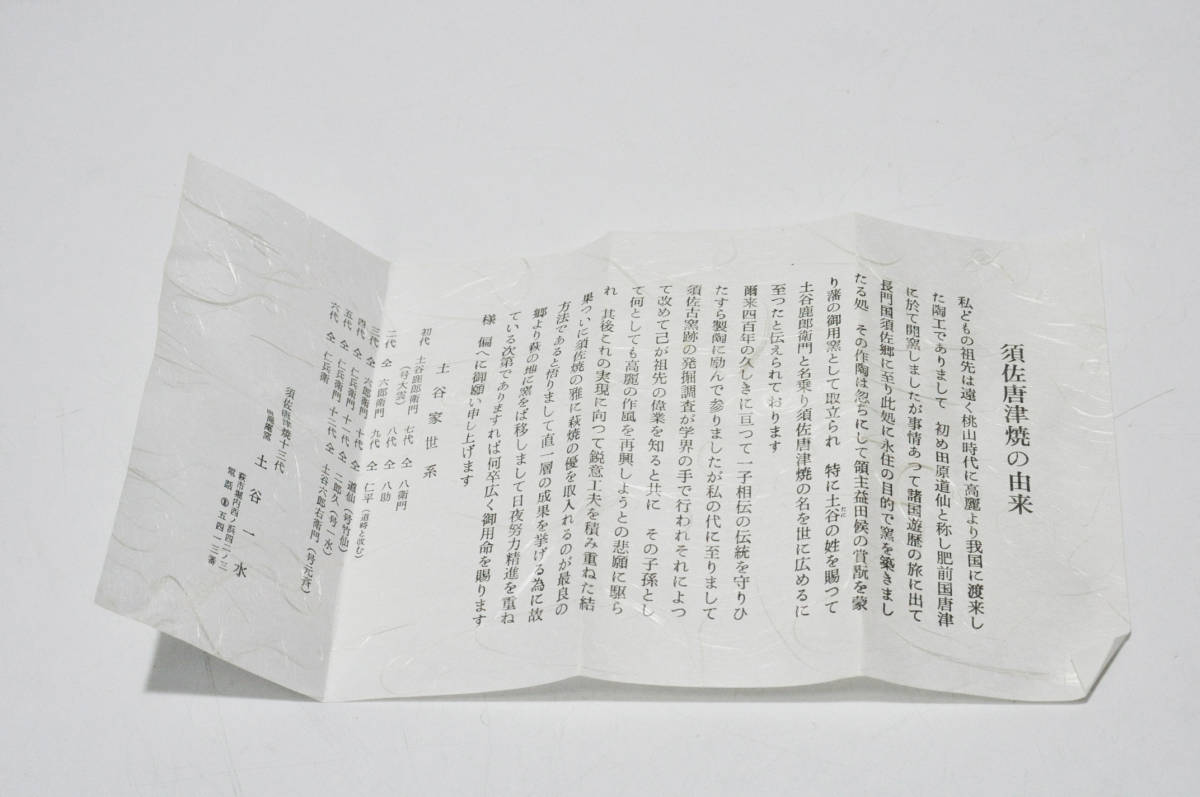 須佐唐津焼の由来
私どもの祖先は遠く桃山時代に高麗より我国に渡来し
た陶工でありまして　初め田原道仙と称し肥前国唐津
に於て開窯しましたが事情あって諸国遊歴の旅に出て
長門国須佐郷に至り此処に永住の目的で窯を築きまし
たる処　その作陶は忽ちにして領主益田候の賞翫を蒙
り藩の御用窯として取立られ　特に土谷の姓を賜って
土谷鹿郎衛門と名乗り須佐唐津焼の名を世に広めるに
至つたと伝えられております
爾来四百年の久しきに亘つて一子相伝の伝統を守りひ
たすら製陶に励んで参りましたが私の代に至りまして
須佐古窯跡の発掘調査が学界の手で行われそれによつ
て改めて己が祖先の偉業を知ると共に　その子孫とし
て何としても高麗の作風を再興しようとの悲願に駆ら
れ　其後これの実現に向つて鋭意工夫を積み重ねた結
果ついに須佐焼の雅に萩焼の優を取入れるのが最良の
方法であると悟りまして直一層の成果を挙げる為に故
郷より萩の地に窯をば移しまして日夜努力精進を重ね
ている次第でありますれば何卒広く御用命を賜ります
様　偏へに御願い申し上げます
土谷家世系
初代　土谷鹿郎衛門（号大雲）　七代　仝　八衛門
二代　仝　六郎衛門　八代　仝　八助
三代　仝　六郎衛門　九代　仝　仁平（道崎と改む）
四代　仝　仁兵衛門　十代　仝　道仙（号竹仙）
五代　仝　仁兵衛門　十一代　仝　二郎久（号一水）
六代　仝　仁兵衛　十二代　仝　土谷六郎右衛門（号元斉）
須佐唐津焼十三代
土谷一水
萩市堀内西ノ浜四二ノ三
電話　五四一三番